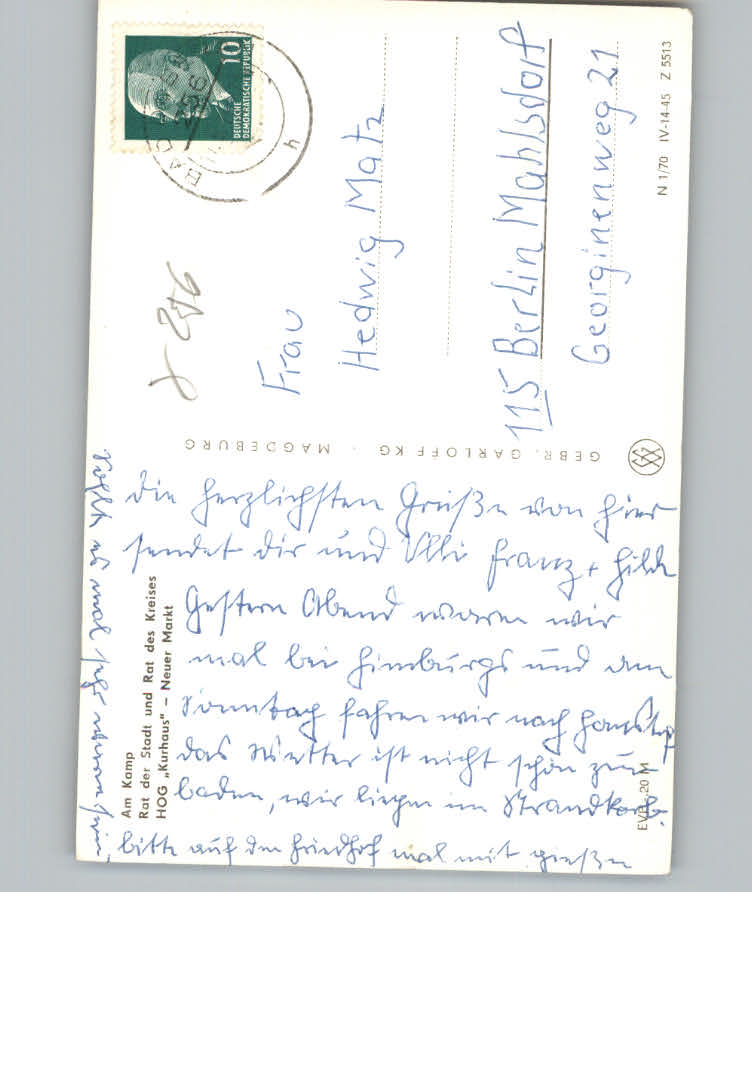 Am Kamp
Rat der Stadt und Rat des Kreises
HOG „Kurhaus" – Neuer Markt
die herzlichsten Grüße von hier
sendet dir und Ulli Franz + Hilde
Gestern Abend waren wir
mal bei Himburgs und am
Sonntag fahren wir nach
das Wetter ist nicht schön zum
baden, wir liegen im Strandkorb.
bitte auf dem Friedhof mal mit gießen
es mal sehr warm
EVP -,20 M
GEBR. GARLOFF KG · MAGDEBURG
DEUTSCHE
DEMOKRATISCHE REPUBLIK
10
BAD
4
Frau
Hedwig Matz
115 Berlin Mahlsdorf
Georginenweg 21
N 1/70 IV-14-45 Z 5513